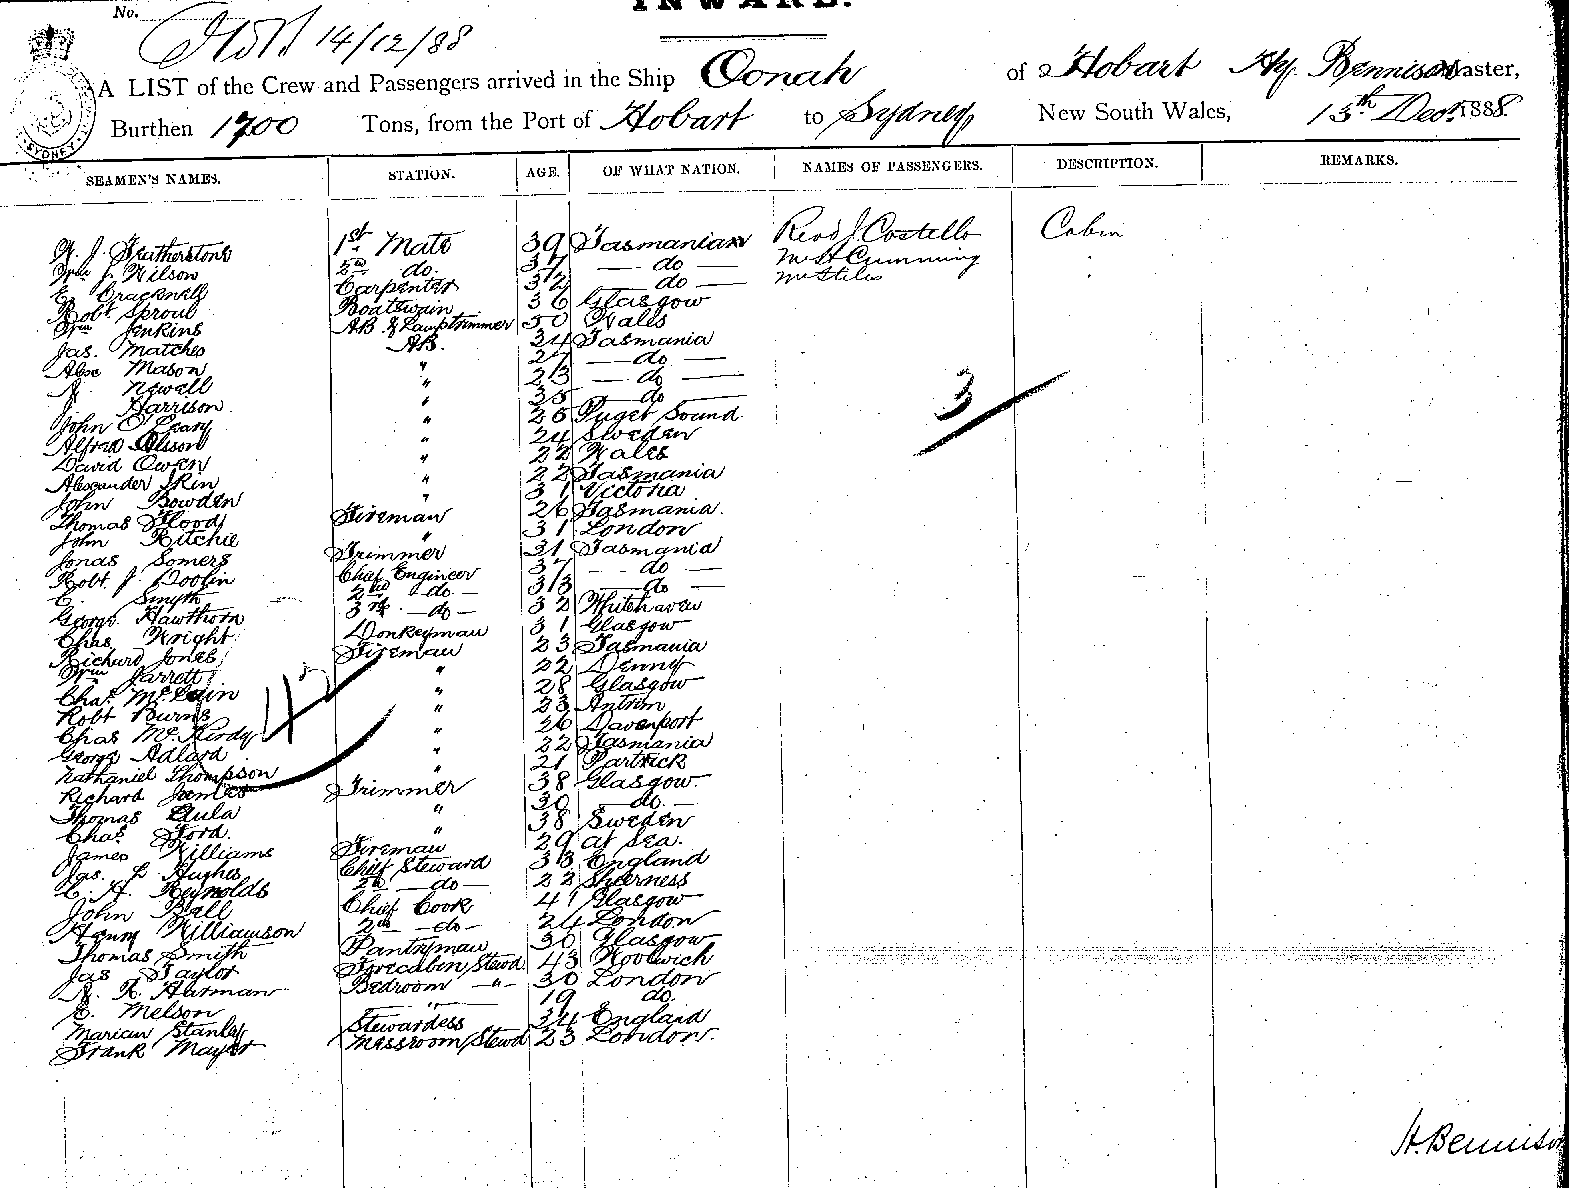 INWARD.
No.
14/12/88
A LIST of the Crew and Passengers arrived in the Ship Oonah of Hobart Hy. Bennison Master,
Burthen 1700 Tons, from the Port of Hobart to Sydney New South Wales, 13th Decr. 1888.
SEAMEN'S NAMES. STATION. AGE. OF WHAT NATION. NAMES OF PASSENGERS. DESCRIPTION. REMARKS.
W. J. Featherstone 1st Mate 39 Tasmanian Revd J. Costello Cabin
Wm J. Wilson 2nd do. 37 — do — Mr St Cumming "
E. Cracknell Carpenter 32 — do — Mr Stiles "
Robt Sproul Boatswain 36 Glasgow
Wm Jenkins AB & Lamptrimmer 50 Wales
Jas. Matches AB. 34 Tasmania
Alex Mason " 27 — do —
Newall " 23 — do —
J. Harrison " 35 — do —
John O'Leary " 26 Puget Sound
Alfred Olsson " 24 Sweden
David Owen " 22 Wales
Alexander Skin " 22 Tasmania
John Bowden " 31 Victoria
Thomas Flood Fireman 26 Tasmania.
John Ritchie " 31 London
Jonas Somers Trimmer 31 Tasmania
Robt. J. Doolin Chief Engineer 37 — do —
C. Smyth 2nd — do — 33 — do —
George Hawthorn 3rd — do — 32 Whitehaven
Chas Wright Donkeyman 31 Glasgow
Richard Jones Fireman 23 Tasmania
Wm Jarrett " 22 Denny
Chas. McLain " 28 Glasgow
Robt Burns " 23 Antrim
Chas McKirdy " 26 Davenport
George Adlard " 22 Tasmania
Nathaniel Thompson " 21 Partrick
Richard James Trimmer 38 Glasgow
Thomas Eula " 30 — do —
Chas. Ford. " 38 Sweden
James Williams Fireman 29 at sea.
Jas. L Hughes Chief Steward 33 England
L. A. Reynolds 2nd — do — 22 Sheerness
John Ball Chief Cook 41 Glasgow
Henry Williamson 2nd — do — 24 London
Thomas Smith Pantryman 30 Glasgow
Jas Taylor Forecabin Stewd 43 Woolwich
Harman Bedroom — " — 30 London
C. Melson — " — 19 do
Marian Stanley Stewardess 34 England
Frank Mayer Messroom Stewd 23 London.
3
H. Bennison